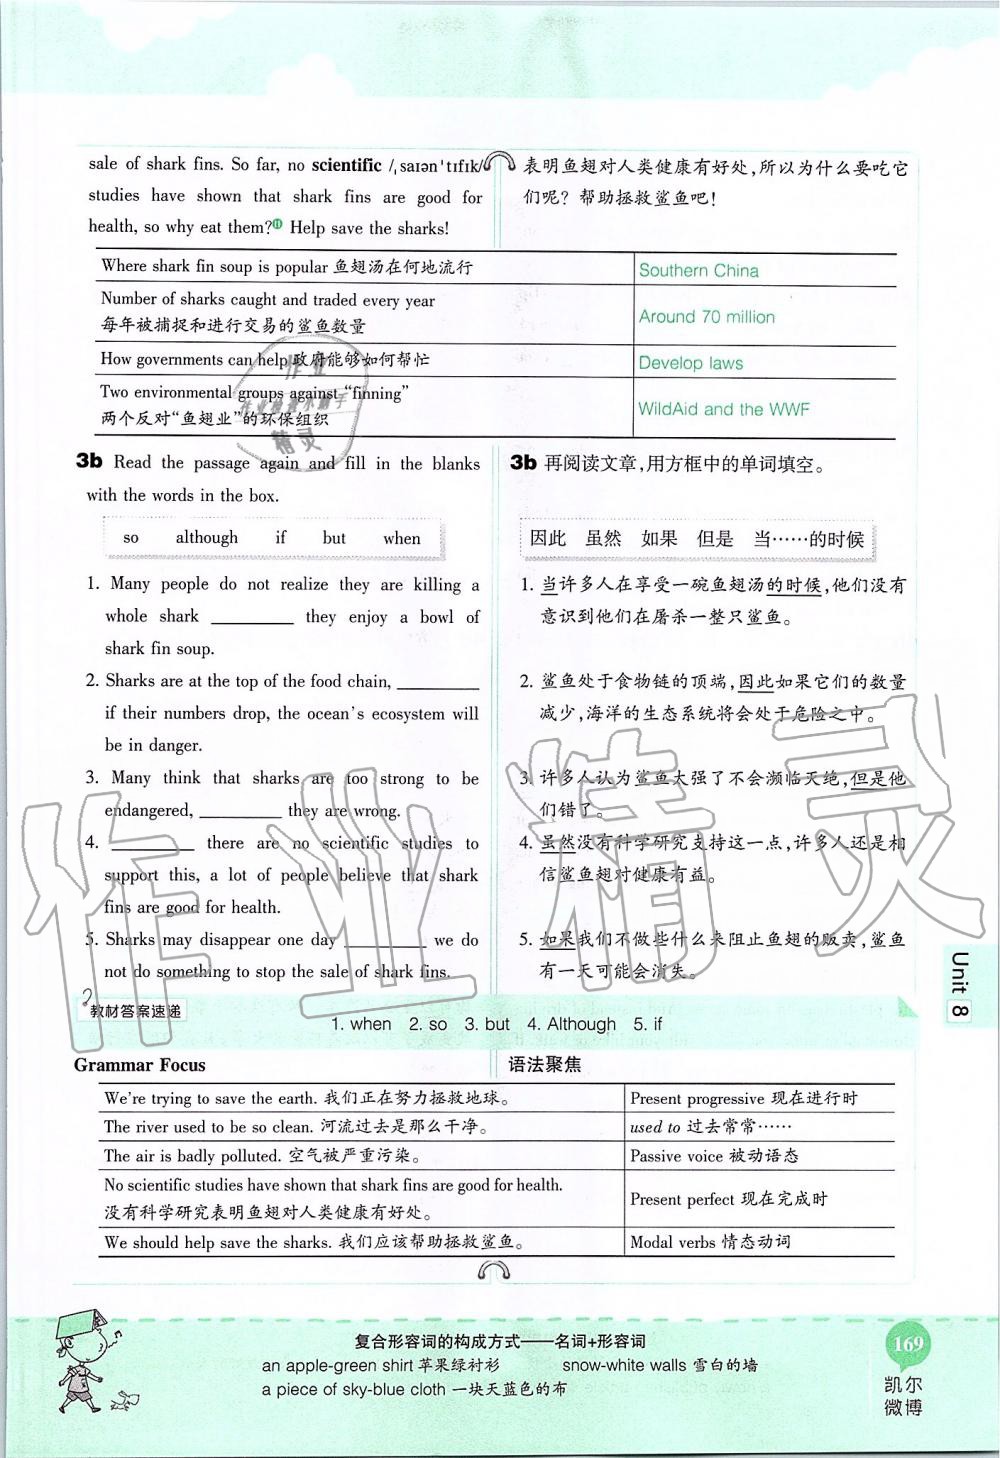 sale of shark fins. So far, no scientific /ˌsaɪənˈtɪfɪk/
studies have shown that shark fins are good for
health, so why eat them?⑪ Help save the sharks!
表明鱼翅对人类健康有好处,所以为什么要吃它
们呢？帮助拯救鲨鱼吧!
Where shark fin soup is popular 鱼翅汤在何地流行
Southern China
Number of sharks caught and traded every year
每年被捕捉和进行交易的鲨鱼数量
Around 70 million
How governments can help 政府能够如何帮忙
Develop laws
Two environmental groups against “finning”
两个反对“鱼翅业”的环保组织
WildAid and the WWF
3b Read the passage again and fill in the blanks
with the words in the box.
so although if but when
1. Many people do not realize they are killing a
whole shark ________ they enjoy a bowl of
shark fin soup.
2. Sharks are at the top of the food chain, ________
if their numbers drop, the ocean's ecosystem will
be in danger.
3. Many think that sharks are too strong to be
endangered, ________ they are wrong.
4. ________ there are no scientific studies to
support this, a lot of people believe that shark
fins are good for health.
5. Sharks may disappear one day ________ we do
not do something to stop the sale of shark fins.
3b 再阅读文章,用方框中的单词填空。
因此 虽然 如果 但是 当……的时候
1. 当许多人在享受一碗鱼翅汤的时候,他们没有
意识到他们在屠杀一整只鲨鱼。
2. 鲨鱼处于食物链的顶端,因此如果它们的数量
减少,海洋的生态系统将会处于危险之中。
3. 许多人认为鲨鱼太强了不会濒临灭绝,但是他
们错了。
4. 虽然没有科学研究支持这一点,许多人还是相
信鲨鱼翅对健康有益。
5. 如果我们不做些什么来阻止鱼翅的贩卖,鲨鱼
有一天可能会消失。
Unit 8
教材答案速递
1. when 2. so 3. but 4. Although 5. if
Grammar Focus
语法聚焦
We're trying to save the earth. 我们正在努力拯救地球。
Present progressive 现在进行时
The river used to be so clean. 河流过去是那么干净。
used to 过去常常……
The air is badly polluted. 空气被严重污染。
Passive voice 被动语态
No scientific studies have shown that shark fins are good for health.
没有科学研究表明鱼翅对人类健康有好处。
Present perfect 现在完成时
We should help save the sharks. 我们应该帮助拯救鲨鱼。
Modal verbs 情态动词
复合形容词的构成方式——名词+形容词
an apple-green shirt 苹果绿衬衫 snow-white walls 雪白的墙
a piece of sky-blue cloth 一块天蓝色的布
169
凯尔
微博
作业精灵